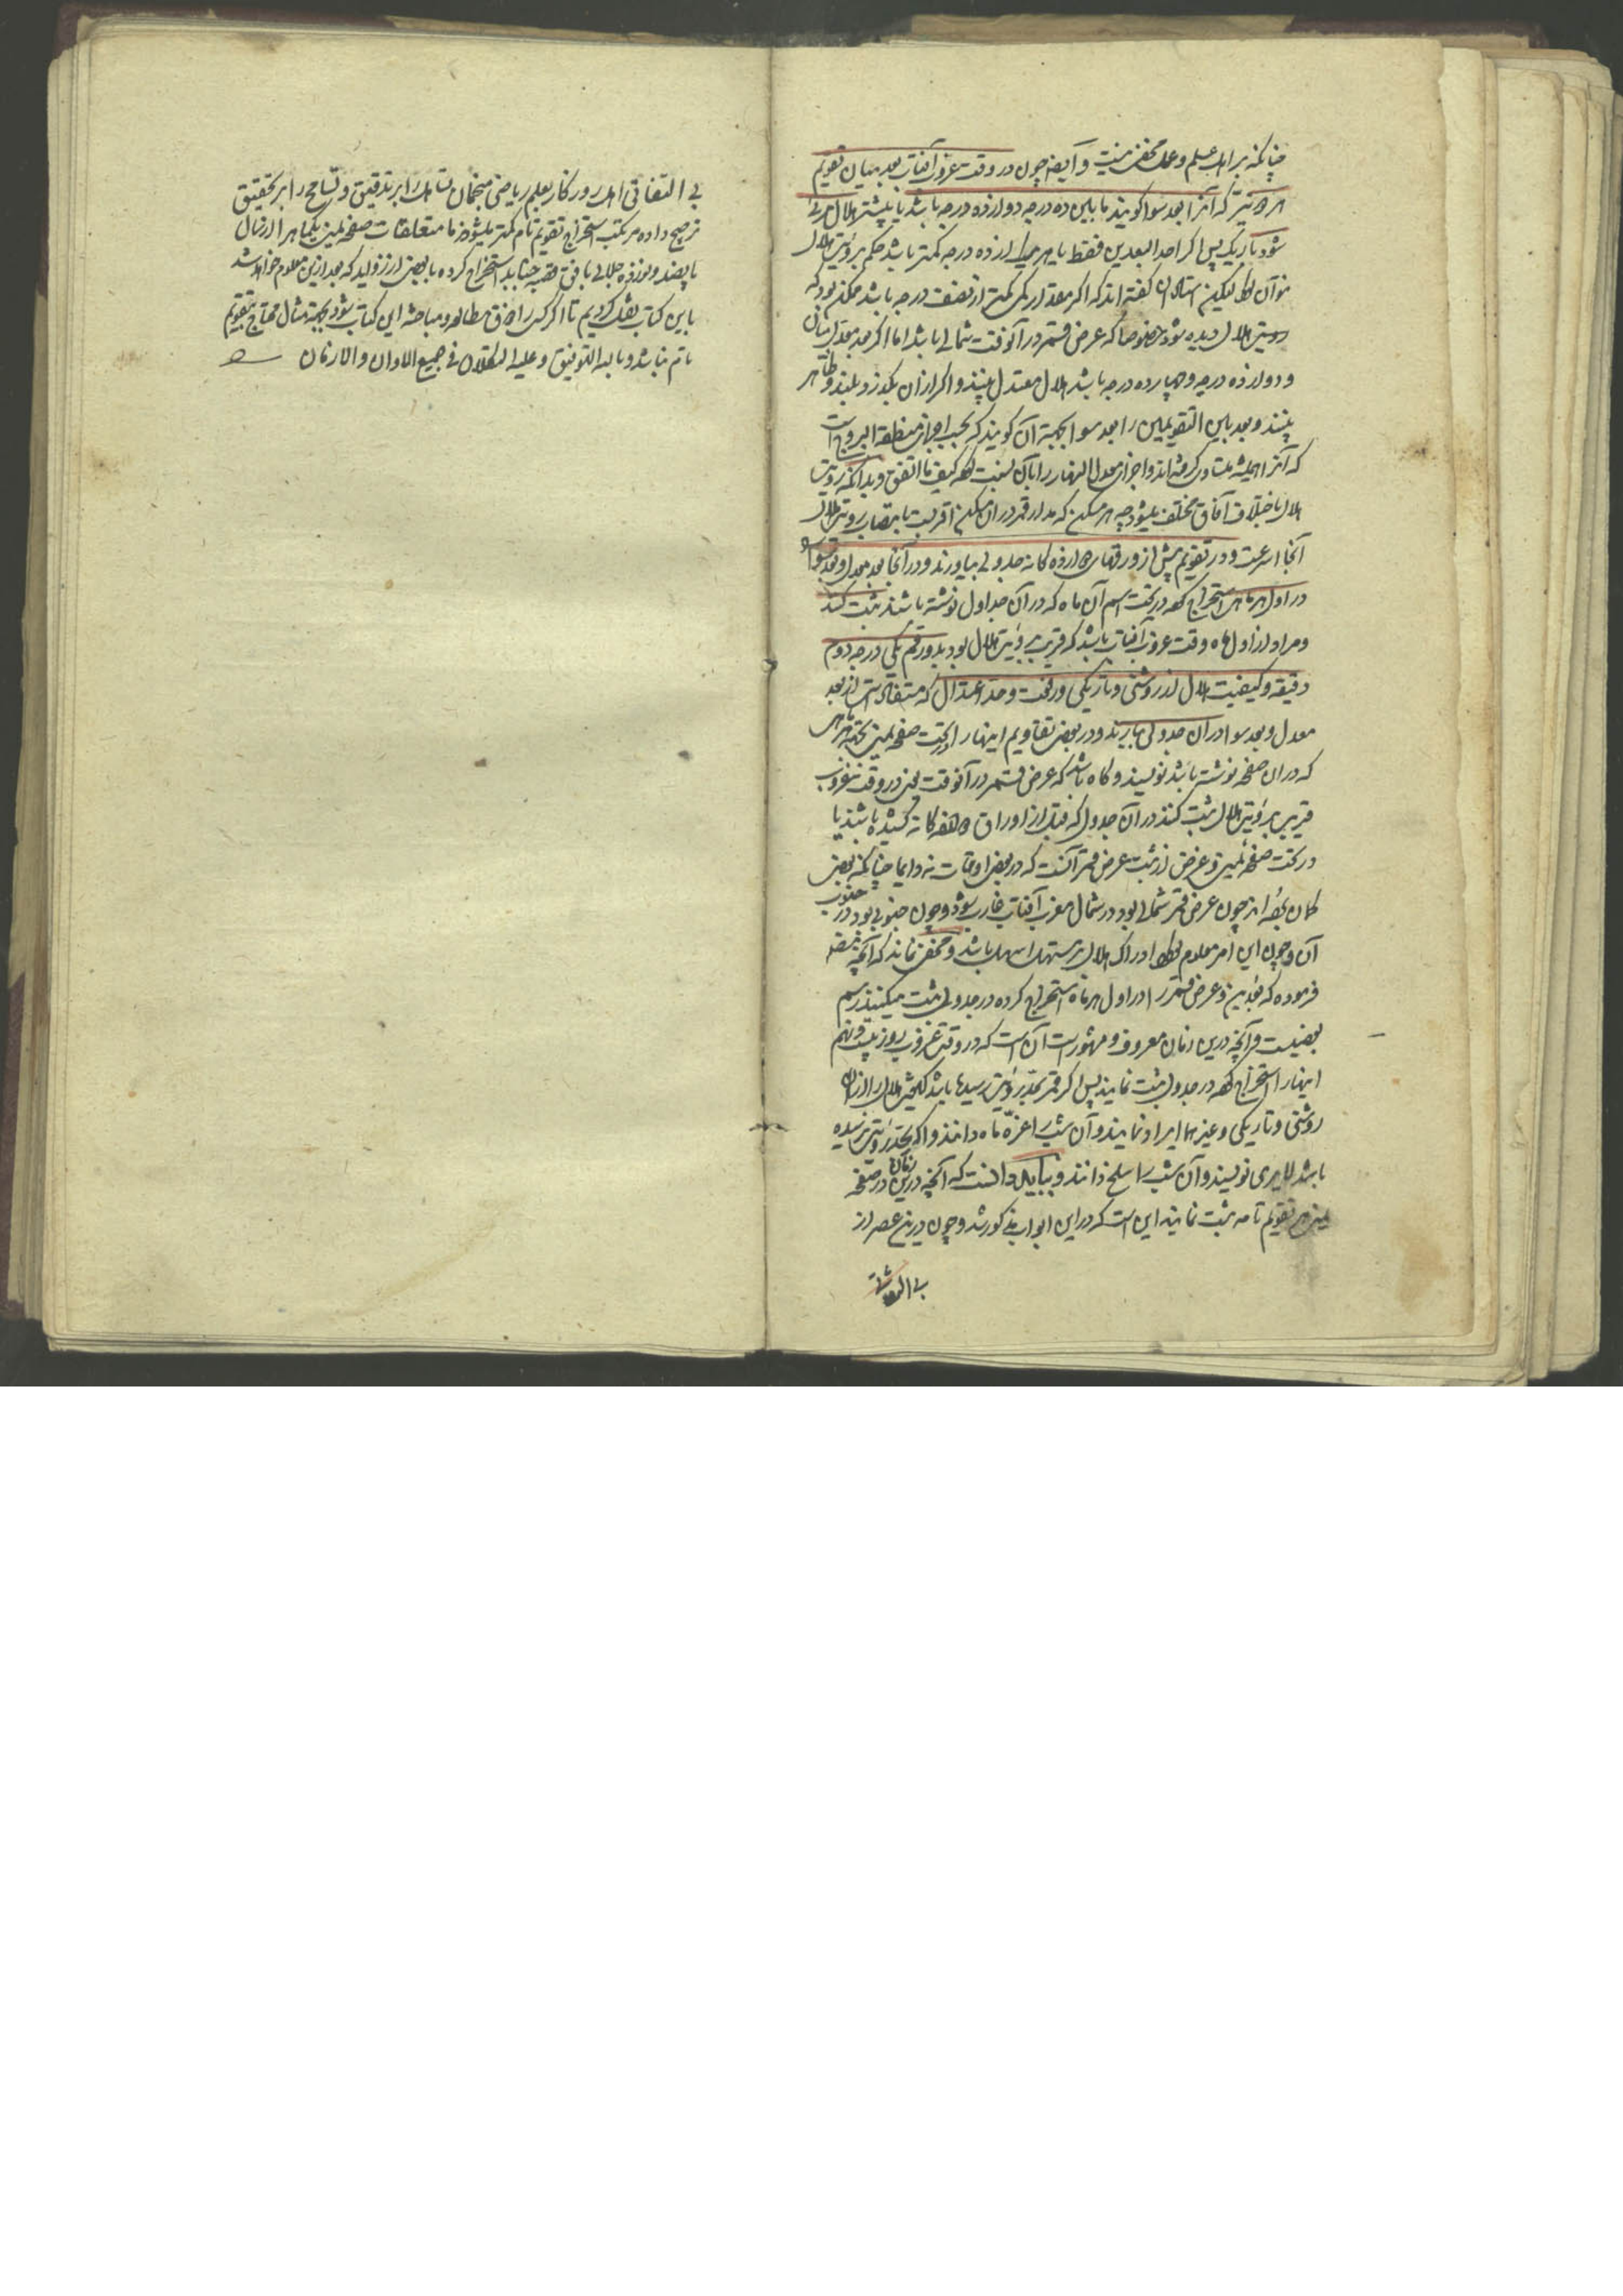 چنانکه بر اهل علم و عمل مخفی نیست و ایضا چون در وقت غروب آفتاب بعد میان تقویم
هر دو نیر که آنرا بعد سوا گویند مابین ده درجه و دوازده درجه باشد یا بیشتر هلال مرئی
شود باریک پس اگر احد البعدین فقط یا هر یک از ده درجه کمتر باشد حکم برؤیت هلال
نتوان کرد لیکن استادان گفته اند که اگر مقدار کمی کمتر از نصف درجه باشد ممکن بود که
رویت هلال دیده شود خصوصا که عرض قمر در آنوقت شمالی باشد اما اگر بعد معدل میان
و دوازده درجه و چهارده درجه باشد هلال معتدل بینند و اگر از آن بگذرد بلند و ظاهر
بینند و بعد بین التقویمین را بعد سوا بجهة آن گویند که بحسب اجزای منطقة البروج است
که آنرا همیشه متساوی گرفته اند و اجزای معدل النهار را با آن نسبت کیف ما اتفق و بدانکه رویت
هلال باختلاف آفاق مختلف میشود چه هر مسکن که مدار قمر در آن مسکن اقربست بانتصاب رویت هلال
آنجا اسرعست و در تقویم پیش از ورقهای دوازده گانه جدولی بیاورند و در آنجا بعد معدل و بعد سوا
در اول هر ماهی استخراج کرده در تحت اسم آن ماه که در آن جداول نوشته باشند ثبت کنند
و مراد از اول ماه وقت غروب آفتاب باشد که قریب برؤیت هلال بود بدو رقم یکی درجه دوم
دقیقه و کیفیت هلال از روشنی و تاریکی و رفعت و حد اعتدال که مستفاد است از بعد
معدل و بعد سوا در آن جدولی بیارند و در بعض تقاویم اینها را در تحت صفحه یمین بجهة هر ماهی
که در آن صفحه نوشته باشد نویسند و گاه باشد که عرض قمر در آنوقت یعنی در وقت غروب
قریب برؤیت هلال ثبت کنند در آن جدول که قبل از اوراق دوازده گانه کشیده باشند یا
در تحت صفحه یمین و غرض از ثبت عرض قمر آنست که در بعض اوقات نه دایما چنانکه بعض
گمان برده اند چون عرض قمر شمالی بود در شمال مغرب آفتاب غارب شود و چون جنوبی بود در جنوب
آن و چون این امر معلوم بود ادراک هلال بر مستهل اسهل باشد و مخفی نماند که آنچه مصنف
فرموده که بعدین و عرض قمر را در اول هر ماه استخراج کرده در جدولی ثبت میکنند رسم
بعضیست و آنچه درین زمان معروف و مشهور است آن است که در وقت غروب روز بیست و نهم
اینها را استخراج کرده در جدول ثبت نمایند پس اگر قمر بحد رؤیت رسیده باشد کیفیت هلال را از
روشنی و تاریکی و غیرهما ایراد نمایند و آن شب را غرهٔ ماه دانند و اگر بحد رؤیت نرسیده
باشد لا یری نویسند و آن شب را سلخ دانند و بباید دانست که آنچه درین زمان در صفحه
یمین هر تقویم تامه ثبت نمایند این است که در این ابواب مذکور شد و چون درین عصر از
بی التفاتی
بی التفاتی اهل روزگار بعلم ریاضی منجمان تساهل را بر تدقیق و تسامح را بر تحقیق
ترجیح داده مرتکب استخراج تقویم تام کمتر میشوند ما متعلقات صفحه یمین یکماهه را از سال
پانصد و نوزده جلالی بافق قصبه جنابد استخراج کرده با بعض از زواید که بعد ازین معلوم خواهد شد
باین کتاب نقل کردیم تا اگر کسی را ذوق مطالعه و مباحثه این کتاب شود بجهة مثال محتاج بتقویم
تام نباشد و بالله التوفیق و علیه التکلان فی جمیع الاوان و الازمان